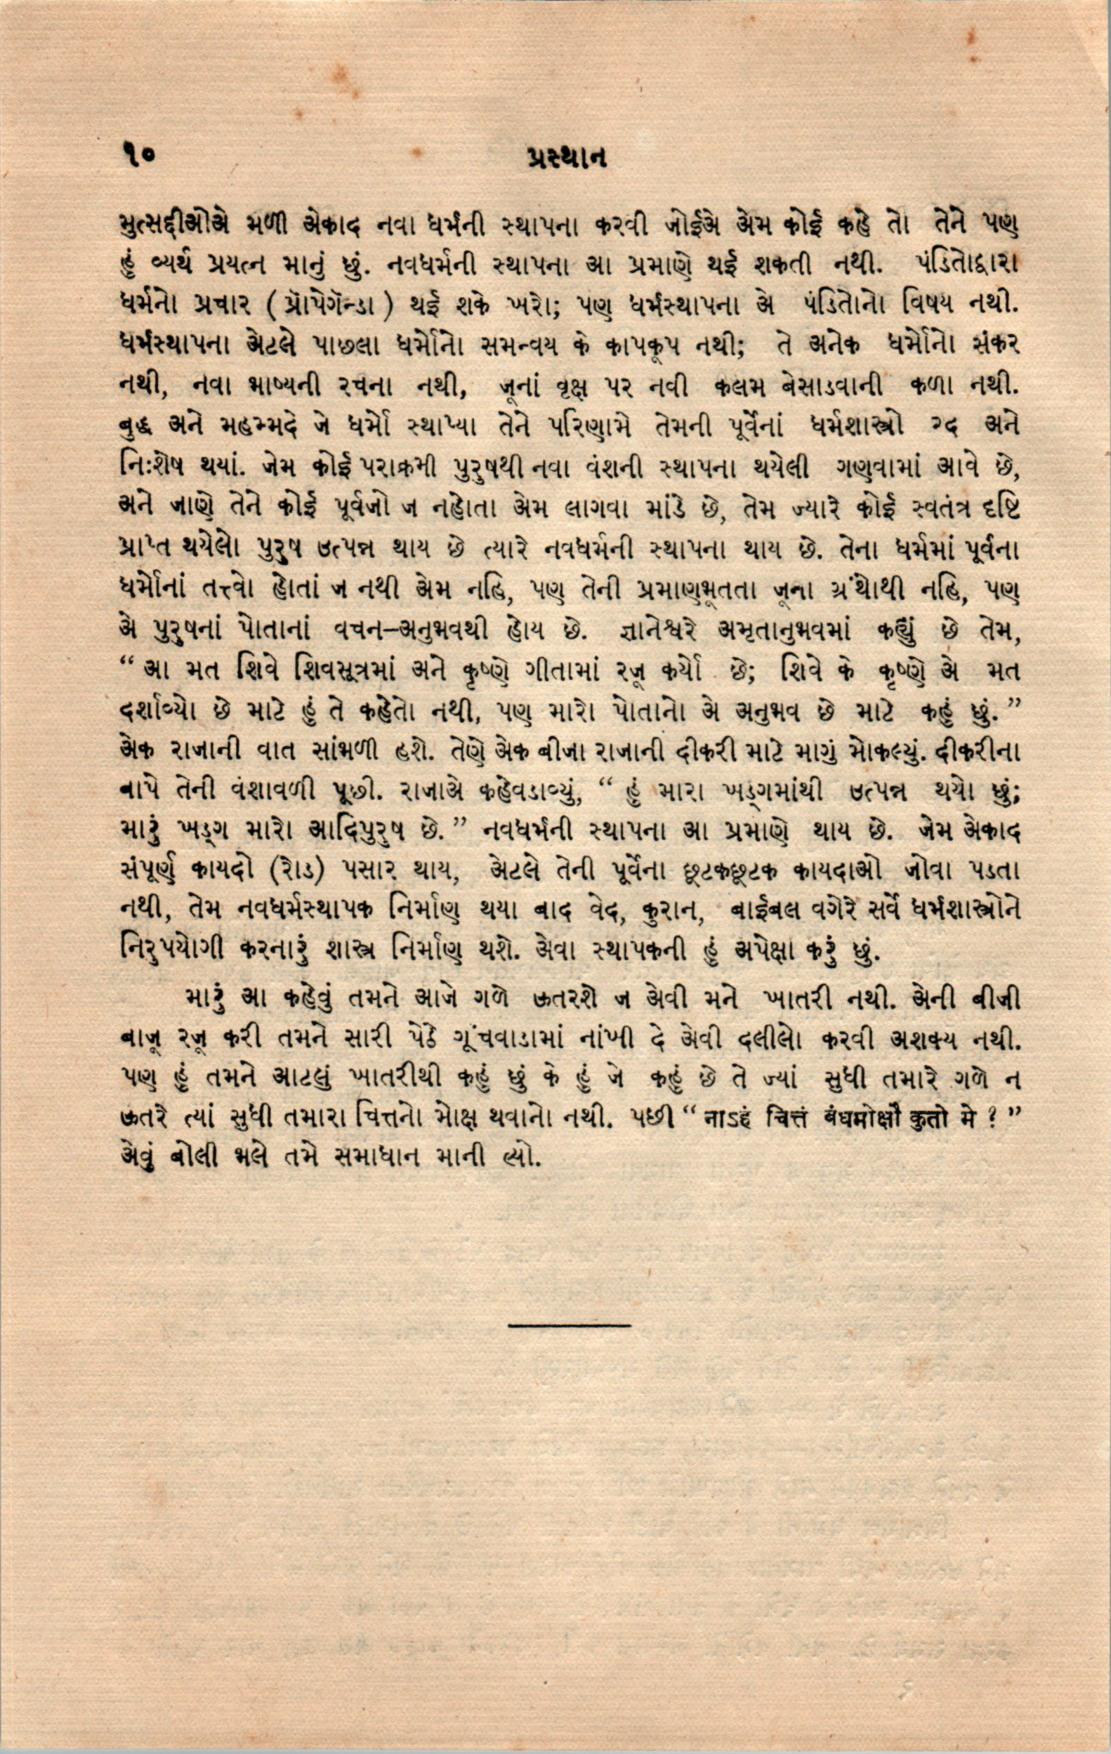 ૧૦ પ્રસ્થાન
મુત્સદ્દીઓએ મળી એકાદ નવા ધર્મની સ્થાપના કરવી જોઈએ એમ કોઈ કહે તો તેને પણ
હું વ્યર્થ પ્રયત્ન માનું છું. નવધર્મની સ્થાપના આ પ્રમાણે થઈ શકતી નથી. પંડિતોદ્વારા
ધર્મનો પ્રચાર ( પ્રૉપેગૅન્ડા ) થઈ શકે ખરો; પણ ધર્મસ્થાપના એ પંડિતોનો વિષય નથી.
ધર્મસ્થાપના એટલે પાછલા ધર્મોનો સમન્વય કે કાપકૂપ નથી; તે અનેક ધર્મોનો સંકર
નથી, નવા ભાષ્યની રચના નથી, જૂનાં વૃક્ષ પર નવી કલમ બેસાડવાની કળા નથી.
બુદ્ધ અને મહમ્મદે જે ધર્મો સ્થાપ્યા તેને પરિણામે તેમની પૂર્વેનાં ધર્મશાસ્ત્રો રદ અને
નિઃશેષ થયાં. જેમ કોઈ પરાક્રમી પુરુષથી નવા વંશની સ્થાપના થયેલી ગણવામાં આવે છે,
અને જાણે તેને કોઈ પૂર્વજો જ નહોતા એમ લાગવા માંડે છે, તેમ જ્યારે કોઈ સ્વતંત્ર દૃષ્ટિ
પ્રાપ્ત થયેલો પુરુષ ઉત્પન્ન થાય છે ત્યારે નવધર્મની સ્થાપના થાય છે. તેના ધર્મમાં પૂર્વના
ધર્મોનાં તત્ત્વો હોતાં જ નથી એમ નહિ, પણ તેની પ્રમાણભૂતતા જૂના ગ્રંથોથી નહિ, પણ
એ પુરુષનાં પોતાનાં વચન–અનુભવથી હોય છે. જ્ઞાનેશ્વરે અમૃતાનુભવમાં કહ્યું છે તેમ,
“ આ મત શિવે શિવસૂત્રમાં અને કૃષ્ણે ગીતામાં રજૂ કર્યો છે; શિવે કે કૃષ્ણે એ મત
દર્શાવ્યો છે માટે હું તે કહેતો નથી, પણ મારો પોતાનો એ અનુભવ છે માટે કહું છું. ”
એક રાજાની વાત સાંભળી હશે. તેણે એક બીજા રાજાની દીકરી માટે માગું મોકલ્યું. દીકરીના
બાપે તેની વંશાવળી પૂછી. રાજાએ કહેવડાવ્યું, “ હું મારા ખડ્ગમાંથી ઉત્પન્ન થયો છું;
મારું ખડ્ગ મારો આદિપુરુષ છે. ” નવધર્મની સ્થાપના આ પ્રમાણે થાય છે. જેમ એકાદ
સંપૂર્ણ કાયદો (રોડ) પસાર થાય, એટલે તેની પૂર્વેના છૂટકછૂટક કાયદાઓ જોવા પડતા
નથી, તેમ નવધર્મસ્થાપક નિર્માણ થયા બાદ વેદ, કુરાન, બાઈબલ વગેરે સર્વે ધર્મશાસ્ત્રોને
નિરુપયોગી કરનારું શાસ્ત્ર નિર્માણ થશે. એવા સ્થાપકની હું અપેક્ષા કરું છું.
મારું આ કહેવું તમને આજે ગળે ઊતરશે જ એવી મને ખાતરી નથી. એની બીજી
બાજૂ રજૂ કરી તમને સારી પેઠે ગૂંચવાડામાં નાંખી દે એવી દલીલો કરવી અશક્ય નથી.
પણ હું તમને આટલું ખાતરીથી કહું છું કે હું જે કહું છે તે જ્યાં સુધી તમારે ગળે ન
ઊતરે ત્યાં સુધી તમારા ચિત્તનો મોક્ષ થવાનો નથી. પછી “ नाऽहं चित्तं बंधमोक्षौ कुतो मे ? ”
એવું બોલી ભલે તમે સમાધાન માની લ્યો.